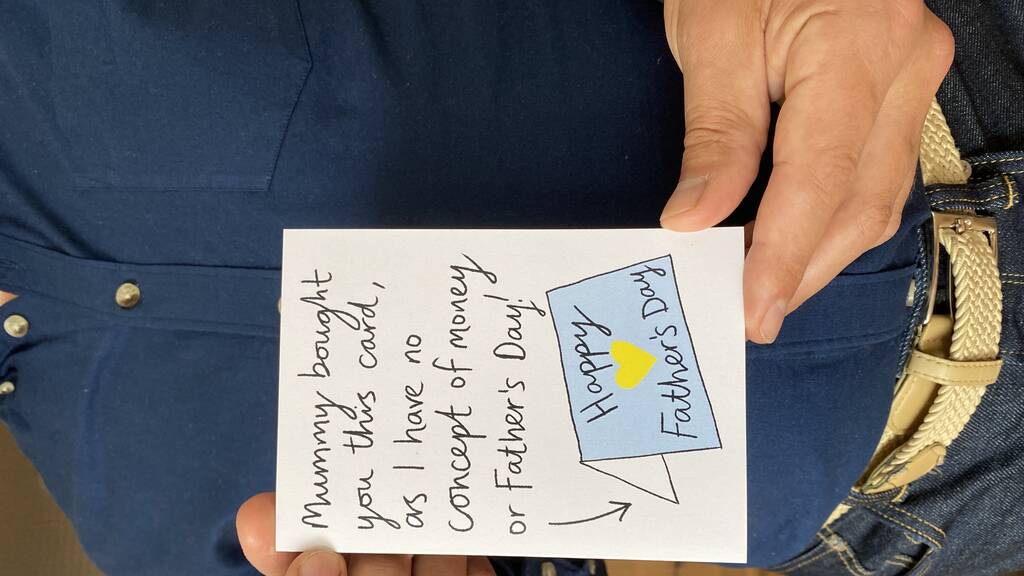 Mummy bought
you this card,
as I have no
concept of money
or Father's Day!
Happy
Father's Day